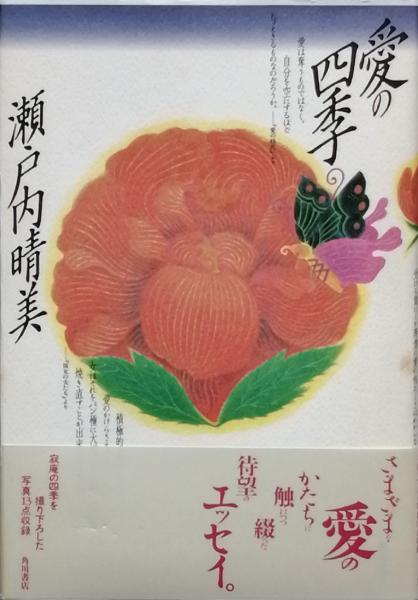 愛の
四季
愛は奪うものではなく、
自分を空にするほど
瀬戸内晴美
積極的
愛のかけらさえ
女はそれをパン種に
焼き直すことが出来
さまざまな
愛の
かたちに
触れつつ
綴った
待望の
エッセイ。
寂庵の四季を
撮り下ろした
写真13点収録
角川書店